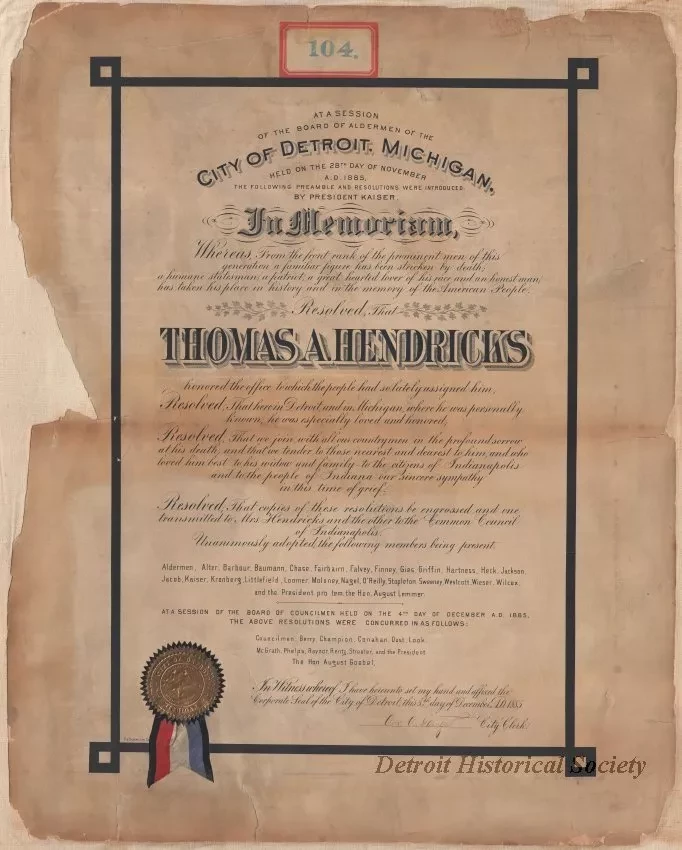 104.
AT A SESSION
OF THE BOARD OF ALDERMEN OF THE
CITY OF DETROIT, MICHIGAN,
HELD ON THE 28TH DAY OF NOVEMBER
A.D. 1885,
THE FOLLOWING PREAMBLE AND RESOLUTIONS WERE INTRODUCED
BY PRESIDENT KAISER.
In Memoriam,
Whereas, From the front rank of the prominent men of this
generation a familiar figure has been stricken by death;
a humane statesman, a patriot, a great hearted lover of his race and an honest man,
has taken his place in history and in the memory of the American People.
Resolved, That
THOMAS A. HENDRICKS
honored the office to which the people had so lately assigned him,
Resolved, That here in Detroit and in Michigan, where he was personally
known, he was especially loved and honored,
Resolved, That we join with all our countrymen in the profound sorrow
at his death, and that we tender to those nearest and dearest to him, and who
loved him best to his widow and family to the citizens of Indianapolis
and to the people of Indiana our sincere sympathy
in this time of grief.
Resolved, That copies of these resolutions be engrossed and one
transmitted to Mrs Hendricks and the other to the Common Council
of Indianapolis.
Unanimously adopted, the following members being present.
Aldermen, Alter, Barbour, Baumann, Chase, Fairbairn, Falvey, Finney, Gies, Griffin, Hartness, Heck, Jackson,
Jacob, Kaiser, Kronberg, Littlefield, Loomer, Moloney, Nagel, O'Reilly, Stapleton, Sweeney, Westcott, Wieser, Wilcox,
and the President pro tem. the Hon. August Lemmer.
AT A SESSION OF THE BOARD OF COUNCILMEN HELD ON THE 4TH DAY OF DECEMBER A.D. 1885,
THE ABOVE RESOLUTIONS WERE CONCURRED IN AS FOLLOWS:
Councilmen, Berry, Champion, Conahan, Dust, Look,
McGrath, Phelps, Raynor, Rentz, Streeter, and the President
The Hon August Goebel.
In Witness whereof I have hereunto set my hand and affixed the
Corporate Seal of the City of Detroit, this 5th day of December, A.D. 1885
City Clerk.
Detroit Historical Society